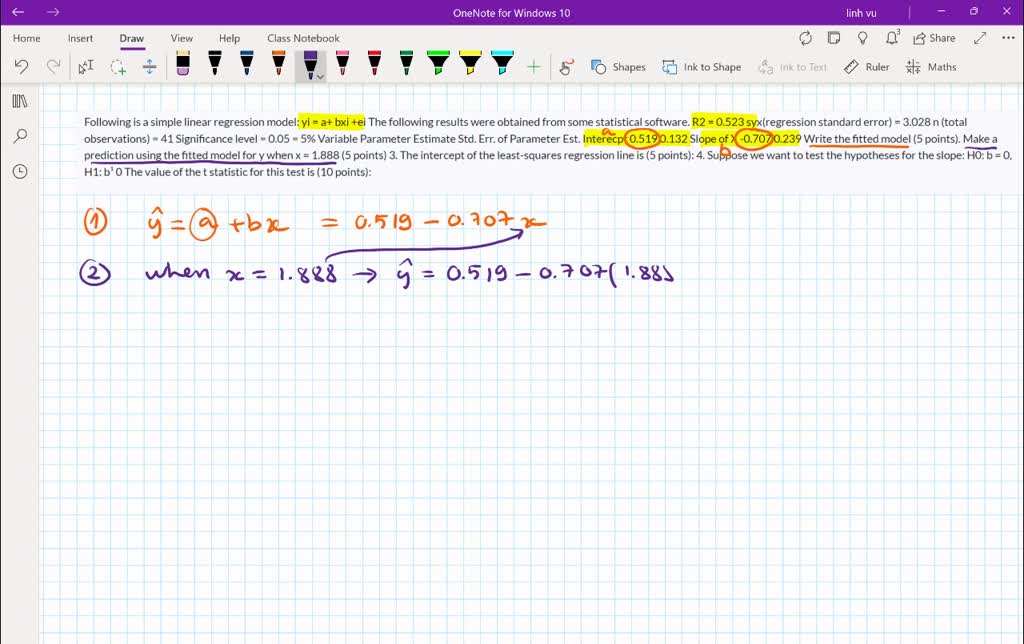 OneNote for Windows 10
linh vu
Home Insert Draw View Help Class Notebook
Share
Shapes Ink to Shape Ink to Text Ruler Maths
Following is a simple linear regression model: yi = a+ bxi +ei The following results were obtained from some statistical software. R2 = 0.523 syx(regression standard error) = 3.028 n (total
observations) = 41 Significance level = 0.05 = 5% Variable Parameter Estimate Std. Err. of Parameter Est. Interecpt 0.519 0.132 Slope of X -0.707 0.239 Write the fitted model (5 points). Make a
prediction using the fitted model for y when x = 1.888 (5 points) 3. The intercept of the least-squares regression line is (5 points): 4. Suppose we want to test the hypotheses for the slope: H0: b = 0,
H1: b¹ 0 The value of the t statistic for this test is (10 points):
a
b
① ŷ = a + bx = 0.519 - 0.707 x
② when x = 1.888 → ŷ = 0.519 - 0.707(1.88